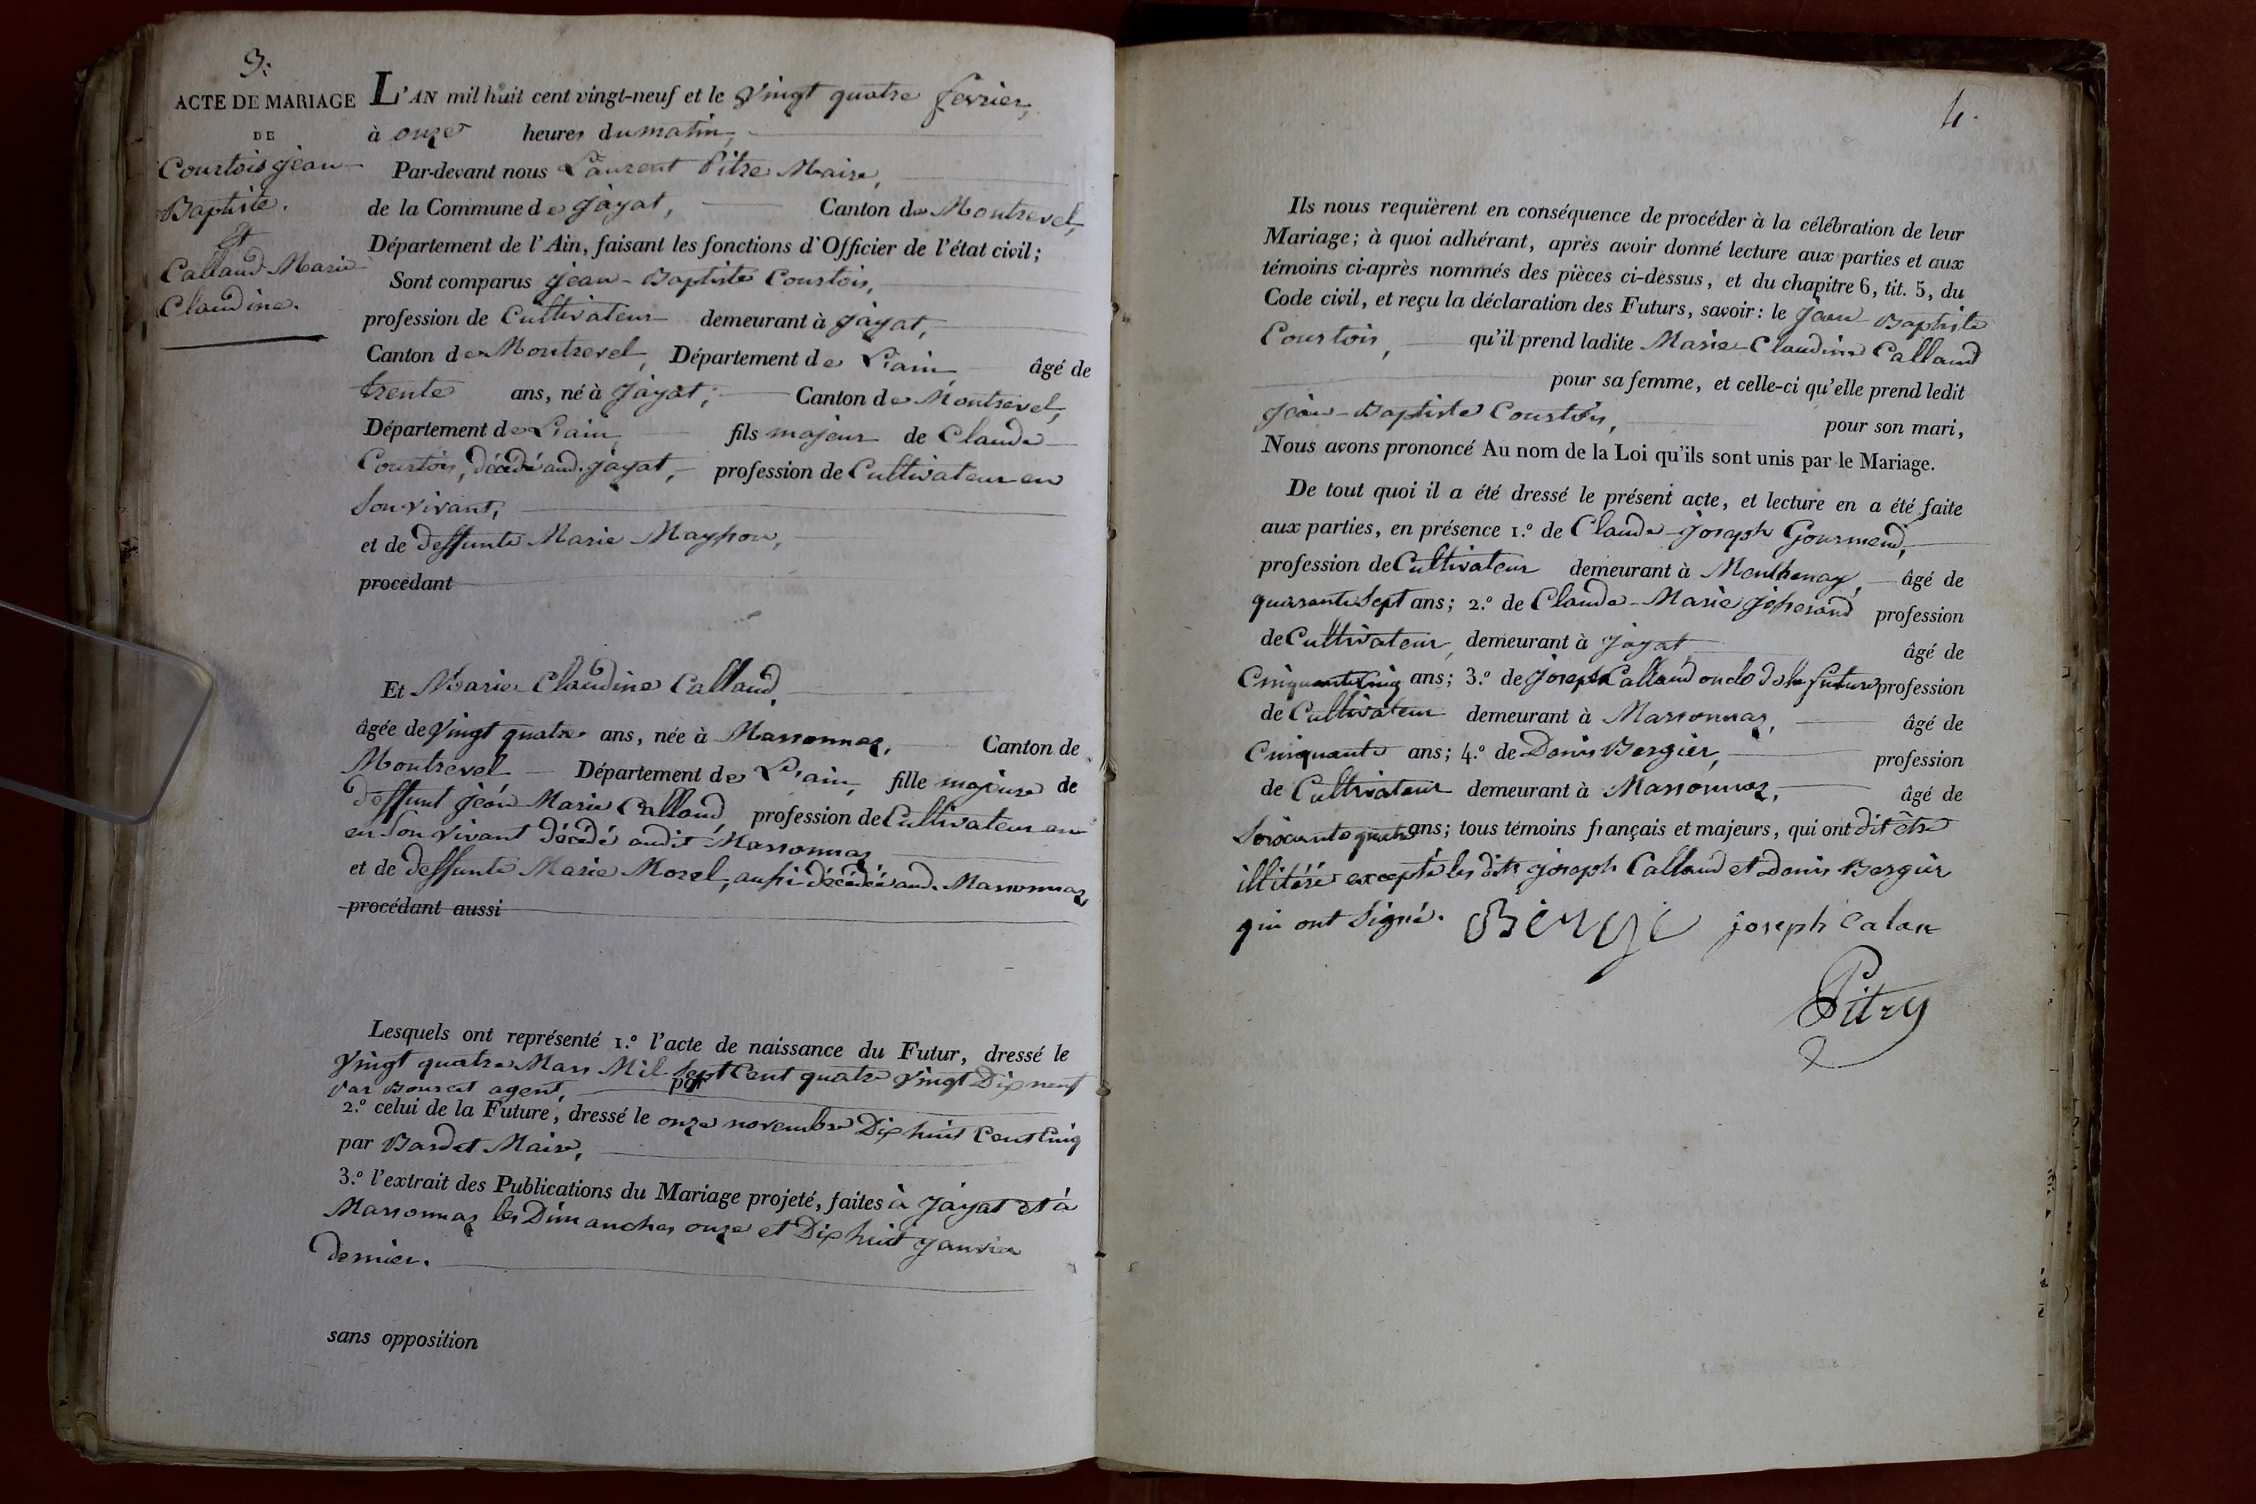 3.
ACTE DE MARIAGE
DE
Courtois jean
Baptiste.
et
Callaud Marie
Claudine.
L'AN mil huit cent vingt-neuf et le Vingt quatre fevrier,
à onze heures du matin,
Par-devant nous Laurent Pitre Maire,
de la Commune de Jayat, Canton de Montrevel,
Département de l'Ain, faisant les fonctions d'Officier de l'état civil;
Sont comparus Jean-Baptiste Courtois,
profession de Cultivateur demeurant à Jayat,
Canton de Montrevel, Département de L'ain, âgé de
trente ans, né à Jayat, Canton de Montrevel,
Département de L'ain fils majeur de Claude
Courtois, décédé aud. Jayat, profession de Cultivateur en
Son vivant,
et de deffunte Marie
procédant
Et Marie Claudine Callaud,
âgée de Vingt quatre ans, née à Marsonnas, Canton de
Montrevel Département de L'ain, fille majeure de
deffunt jean Marie Callaud, profession de Cultivateur en
en Son vivant décédé audit Marsonnas
et de deffunte Marie Morel, aussi décédée aud. Marsonnas
procédant aussi
Lesquels ont représenté 1.º l'acte de naissance du Futur, dressé le
Vingt quatre Mars Mil Sept Cent quatre Vingt Dix neuf
par
par agent,
2.º celui de la Future, dressé le onze novembre Dix huit Cent Cinq
par Bardet Maire,
3.º l'extrait des Publications du Mariage projeté, faites à Jayat et à
Marsonnas les Dimanches onze et Dix huit janvier
dernier.
sans opposition
4.
Ils nous requièrent en conséquence de procéder à la célébration de leur
Mariage; à quoi adhérant, après avoir donné lecture aux parties et aux
témoins ci-après nommés des pièces ci-dessus, et du chapitre 6, tit. 5, du
Code civil, et reçu la déclaration des Futurs, savoir: le Jean Baptiste
Courtois, qu'il prend ladite Marie Claudine Callaud
pour sa femme, et celle-ci qu'elle prend ledit
Jean-Baptiste Courtois, pour son mari,
Nous avons prononcé Au nom de la Loi qu'ils sont unis par le Mariage.
De tout quoi il a été dressé le présent acte, et lecture en a été faite
aux parties, en présence 1.º de Claude joseph Gourmend,
profession de Cultivateur demeurant à âgé de
quarante Sept ans; 2.º de Claude-Marie profession
de Cultivateur, demeurant à Jayat âgé de
Cinquante Cinq ans; 3.º de joseph Callaud oncle de la future profession
de Cultivateur demeurant à Marsonnas, âgé de
Cinquante ans; 4.º de Denis Bergier, profession
de Cultivateur demeurant à Marsonnas, âgé de
Soixante quatre ans; tous témoins français et majeurs, qui ont dit être
illitéré excepté les dits joseph Callaud et Denis Bergier
qui ont Signé. joseph Calan
Pitre